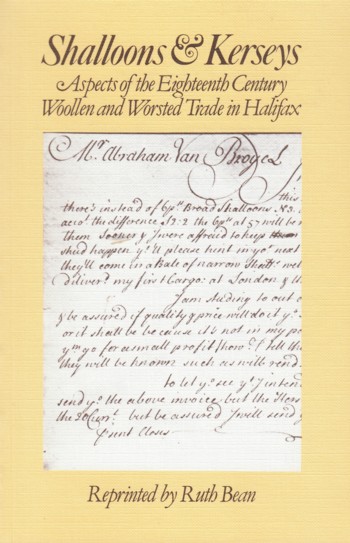 Shalloons & Kerseys
Aspects of the Eighteenth Century
Woollen and Worsted Trade in Halifax
Mr Abraham Van Broyel
this
there's instead of 6ps Broad Shalloons No.
the difference 52:2 the 6ps at 57 will be
them Sooner & I were affraid to keep them
shud happen ye'll please hint in yor next
they'll come in a Bale of narrow Shalls
diliver'd my first Cargo: at London & th
I am studing to out
& be assured if quality & price will do it
or it shall be because it's not in my po
for a small profit I tell th
they will be known such as will rend
to let ye see yt I inten
send ye the above invoice but the
the but be assured I will send y
Reprinted by Ruth Bean